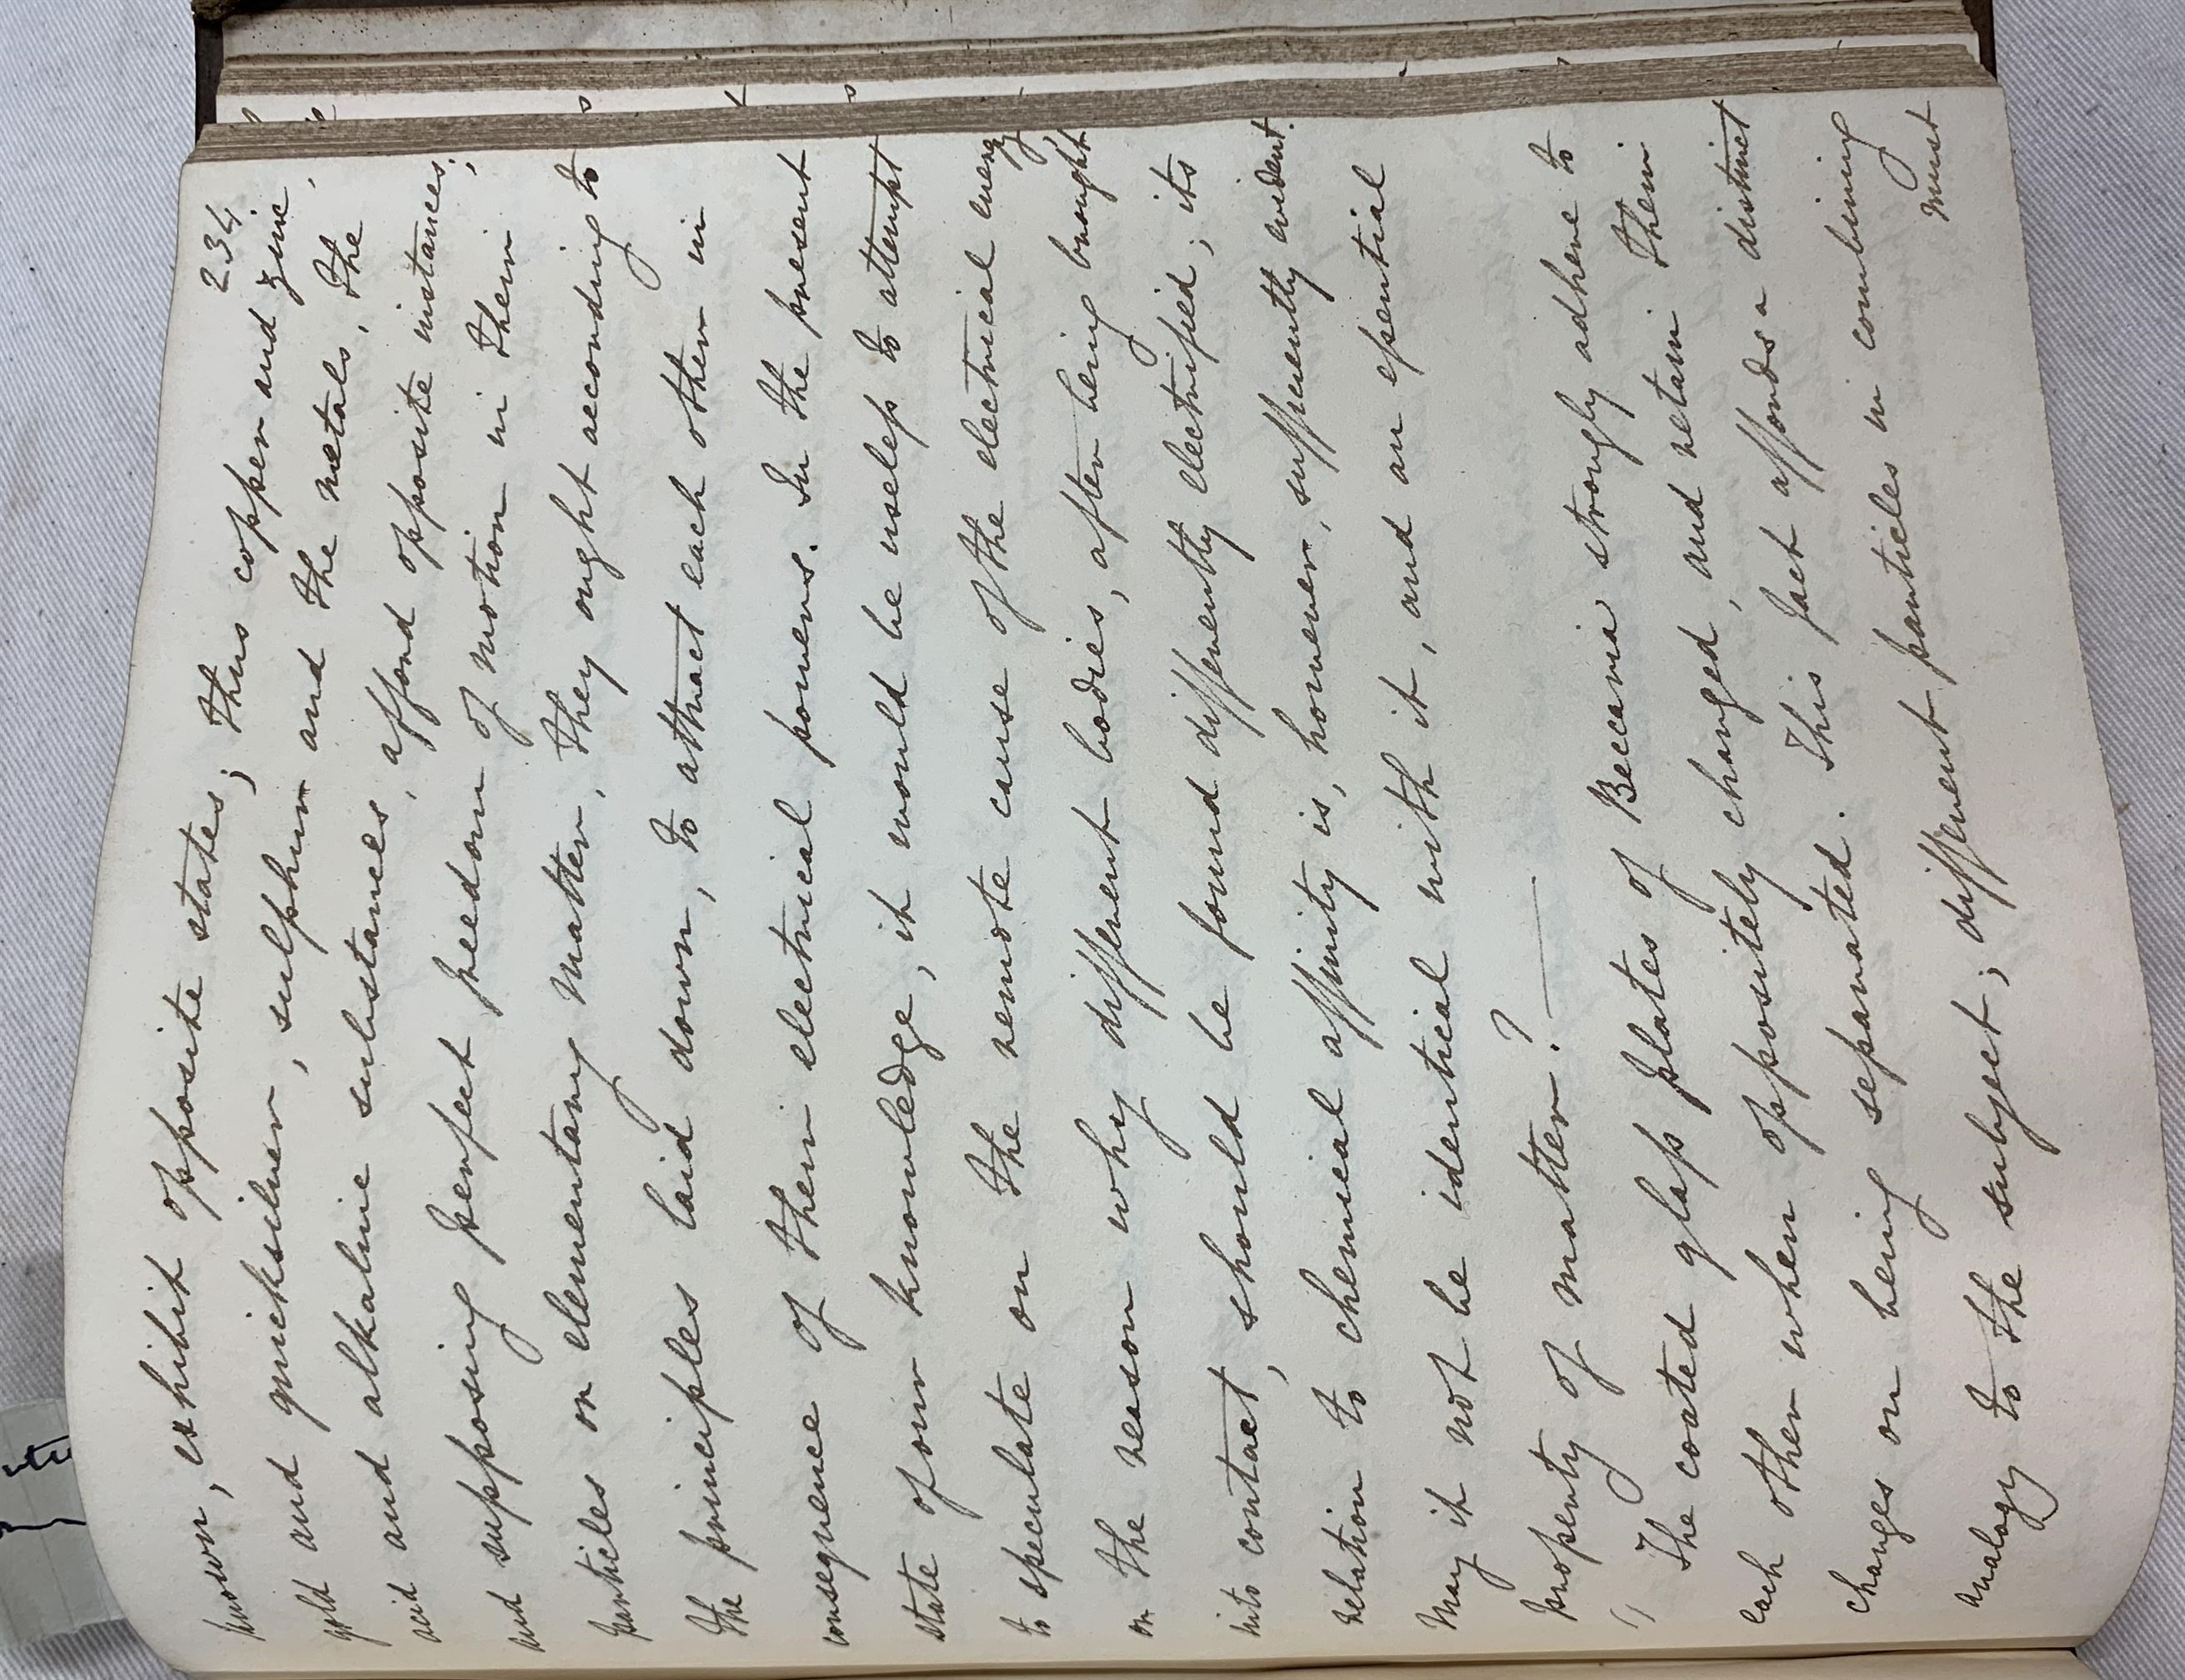 234
known, exhibit opposite states; thus copper and zinc,
gold and quicksilver, sulphur and the metals, the
acid and alkaline substances, afford opposite instances;
and supposing perfect freedom of motion in their
particles or elementary matter, they ought according to
the principles laid down, to attract each other in
consequence of their electrical powers. In the present
state of our knowledge, it would be useless to attempt
to speculate on the remote cause of the electrical energy
or the reason why different bodies, after being brought
into contact, should be found differently electrified; its
relation to chemical affinity is, however, sufficiently evident.
May it not be identical with it, and an essential
property of matter?
" The coated glass plates of Beccaria strongly adhere to
each other when oppositely changed, and retain their
changes on being separated. This fact affords a distinct
analogy to the subject; different particles in combining
must